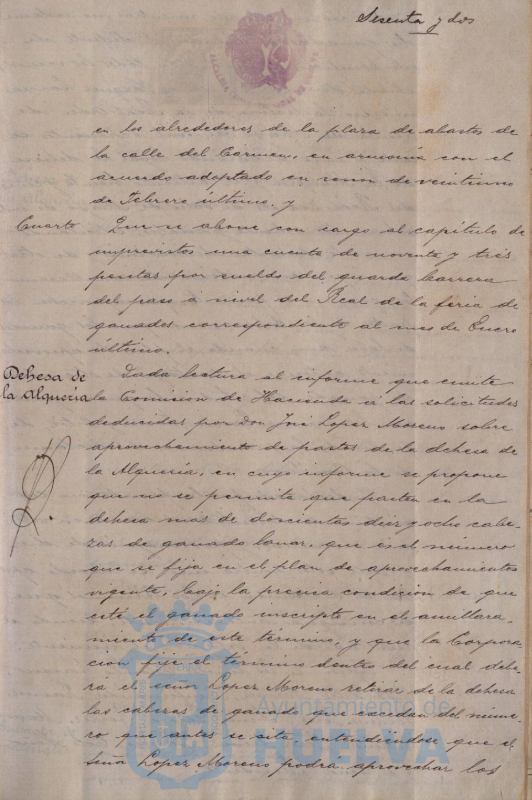 Sesenta y dos
en los alrededores de la plaza de abastos de
la calle del Carmen, en armonía con el
acuerdo adoptado en sesion de veintiuno
de Febrero último. y
Cuarto Que se abone con cargo al capítulo de
imprevistos una cuenta de noventa y tres
pesetas por sueldo del guarda barrera
del paso á nivel del Real de la feria de
ganados correspondiente al mes de Enero
último.
Dehesa de
la Alquería
Dada lectura al informe que emite
la Comision de Hacienda á las solicitudes
deducidas por Don José Lopez Moreno sobre
aprovechamiento de pastos de la dehesa de
la Alquería, en cuyo informe se propone
que no se permita que pasten en la
dehesa más de doscientos diez y ocho cabe-
zas de ganado lanar, que es el número
que se fija en el plan de aprovechamientos
vigente, bajo la precisa condicion de que
esté el ganado inscripto en el amillara-
miento de este término, y que la Corpora-
cion fije el término dentro del cual debe-
rá el señor Lopez Moreno retirar de la dehesa
las cabezas de ganado que excedan del núme-
ro que antes se cita entendiéndose que el
señor Lopez Moreno podrá aprovechar los
Ayuntamiento de
HUELVA